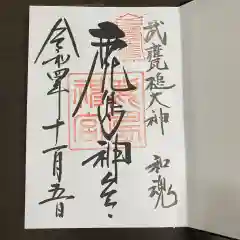 武甕槌大神
和魂
鹿嶋神宮
令和四年十一月五日